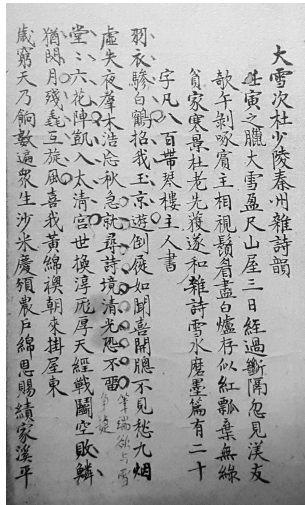 大雪次杜少陵秦州雜詩韻
壬寅之臘大雪盈尺山屋三日經過斷隔忽見渼友
欹午剝啄賓主相視鬚眉盡白爐存似紅瓢棄無綠
貧家寒景杜老先獲遂和雜詩雪水磨墨篇有二十
字凡八百帶琹樓主人書
羽衣驂白鶴招我玉京遊倒屣如聞喜開牕不見愁九烟
虛失夜犖木浩忘秋急就尋詩境清光恐不留
堂堂六花陣凱入太清宮世換淳厖厚天經戰鬪空敗鱗
猶閃月殘毳互旋風喜我黃綿襖朝來掛屋東
歲窮天乃餉數遍衆生沙米慶頒農戶綿恩賜績家溪平